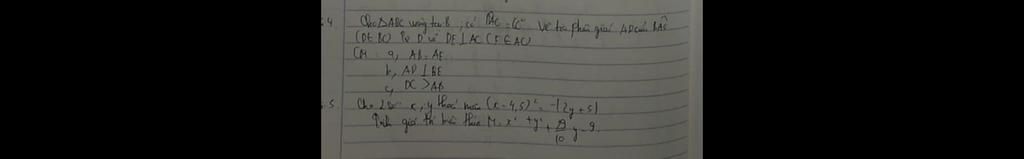 4. Cho ΔABC vuông tại B, có BAC = 60° Vẽ tia phân giác AD của BAC
(D∈BC) Từ D vẽ DE⊥AC (E∈AC)
CM a, AB = AE
b, AD⊥BE
c, DC > AB
5. Cho 2 số x, y thoả mãn (x-4,5)² = -|2y+5|
Tính giá trị biểu thức M = x² + y² + 29/10 y - 9.